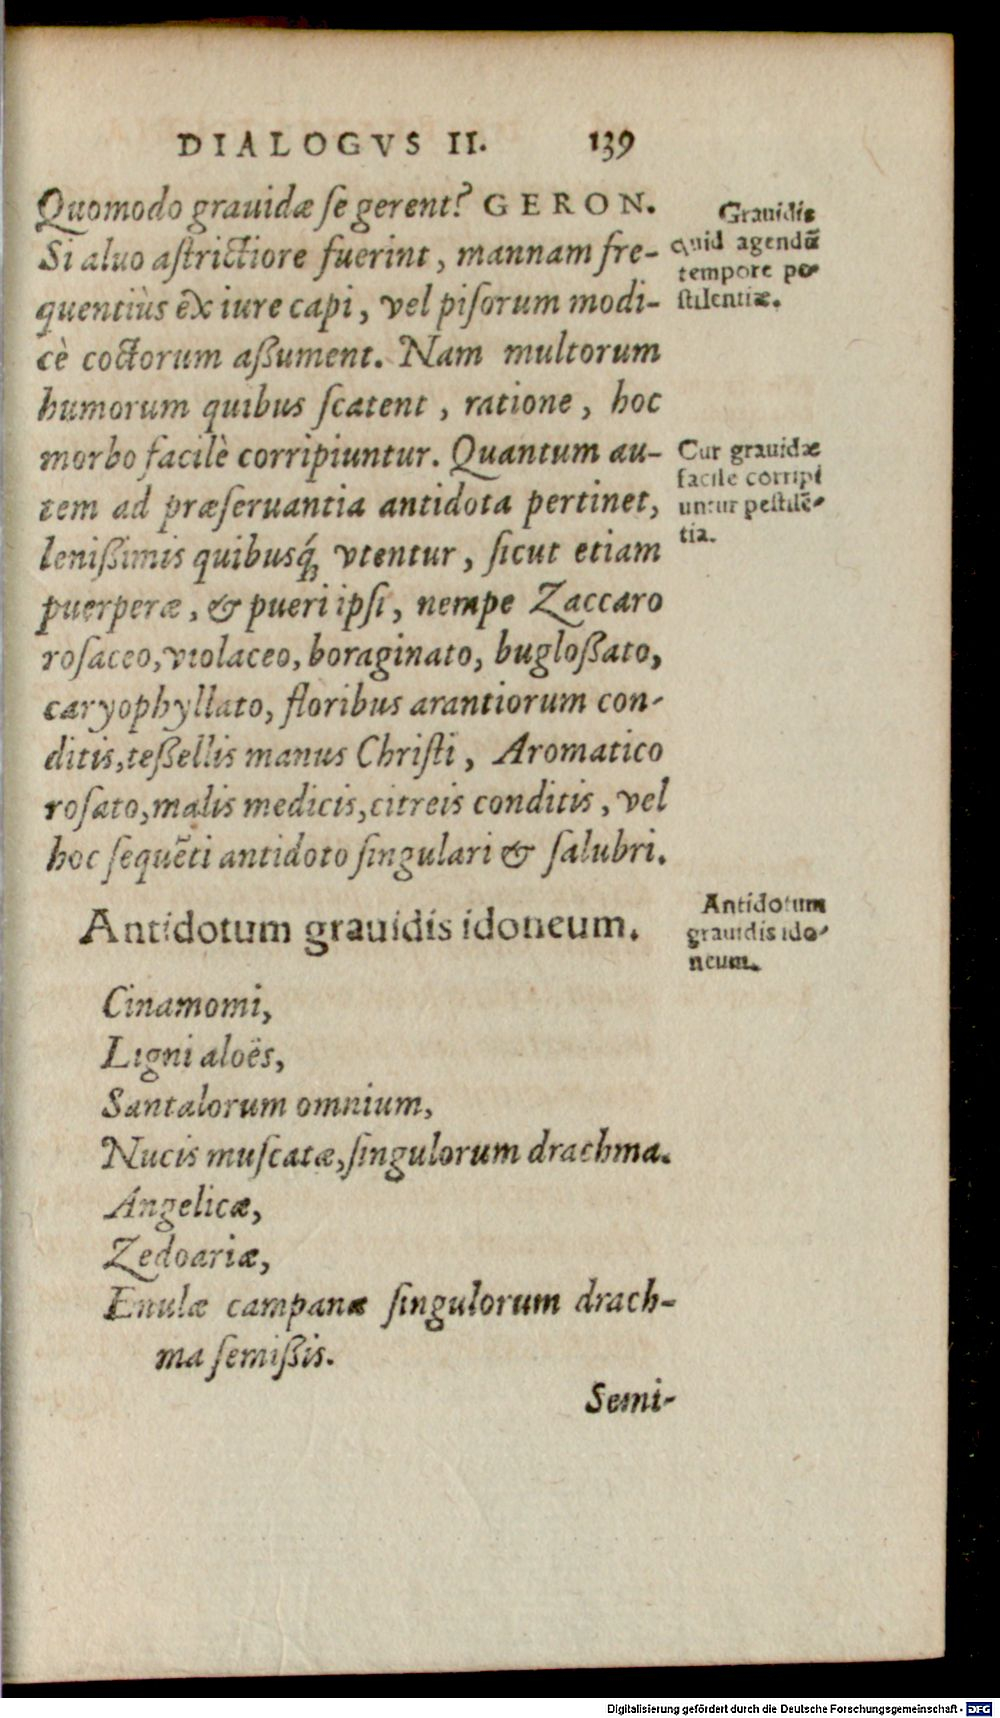 DIALOGVS II. 139
Quomodo grauidæ ſe gerent? GERON.
Si aluo aſtrictiore fuerint, mannam fre-
quentiùs ex iure capi, vel piſorum modi-
cè coctorum aßument. Nam multorum
humorum quibus ſcatent, ratione, hoc
morbo facilè corripiuntur. Quantum au-
tem ad præſeruantia antidota pertinet,
lenißimis quibusq́; vtentur, ſicut etiam
puerperæ, & pueri ipſi, nempe Zaccaro
roſaceo, violaceo, boraginato, bugloßato,
caryophyllato, floribus arantiorum con-
ditis, teßellis manus Chriſti, Aromatico
roſato, malis medicis, citreis conditis, vel
hoc ſequẽti antidoto ſingulari & ſalubri.
Grauidis
quid agendũ
tempore pe-
ſtilentiæ.
Cur grauidæ
facile corripi
untur peſtilẽ-
tia.
Antidotum grauidis idoneum.
Antidotum
grauidis ido-
neum.
Cinamomi,
Ligni aloës,
Santalorum omnium,
Nucis muſcatæ, ſingulorum drachma.
Angelicæ,
Zedoariæ,
Enulæ campanæ ſingulorum drach-
ma ſemißis.
Semi-
Digitalisierung gefördert durch die Deutsche Forschungsgemeinschaft - DFG